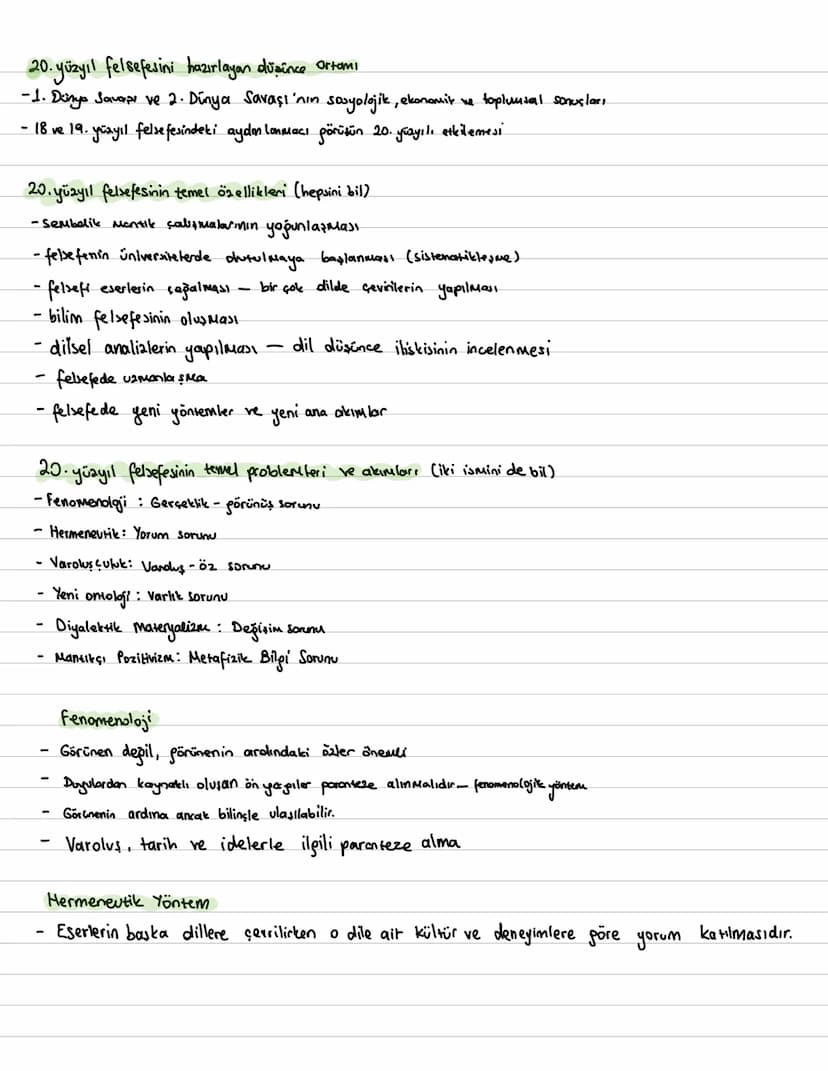 20. yüzyıl felsefesini hazırlayan düşünce ortamı
-1. Dünya Savaşı ve 2. Dünya Savaşı'nın sosyolojik, ekonomik ve toplumsal sonuçları
- 18 ve 19. yüzyıl felsefesindeki aydınlanmacı görüşün 20. yüzyılı etkilemesi
20. yüzyıl felsefesinin temel özellikleri (hepsini bil)
- sembolik mantık çalışmalarının yoğunlaşması
- felsefenin üniversitelerde okutulmaya başlanması (sistematikleşme)
- felsefi eserlerin çoğalması — bir çok dilde çevirilerin yapılması
- bilim felsefesinin oluşması
- dilsel analizlerin yapılması — dil düşünce ilişkisinin incelenmesi
- felsefede uzmanlaşma
- felsefede yeni yöntemler ve yeni ana akımlar
20. yüzyıl felsefesinin temel problemleri ve akımları (iki ismini de bil)
- Fenomenoloji : Gerçeklik - görünüş sorunu
- Hermeneutik : Yorum sorunu
- Varoluşçuluk : Varoluş - öz sorunu
- Yeni ontoloji : Varlık sorunu
- Diyalektik Materyalizm : Değişim sorunu
- Mantıkçı Pozitivizm : Metafizik Bilgi Sorunu
Fenomenoloji
- Görünen değil, görünenin ardındaki özler önemli
- Duyulardan kaynaklı oluşan ön yargılar paranteze alınmalıdır — fenomenolojik yöntem
- Görünenin ardına ancak bilinçle ulaşılabilir.
- Varoluş, tarih ve idelerle ilgili paranteze alma
Hermeneutik Yöntem
- Eserlerin başka dillere çevrilirken o dile ait kültür ve deneyimlere göre yorum katılmasıdır.